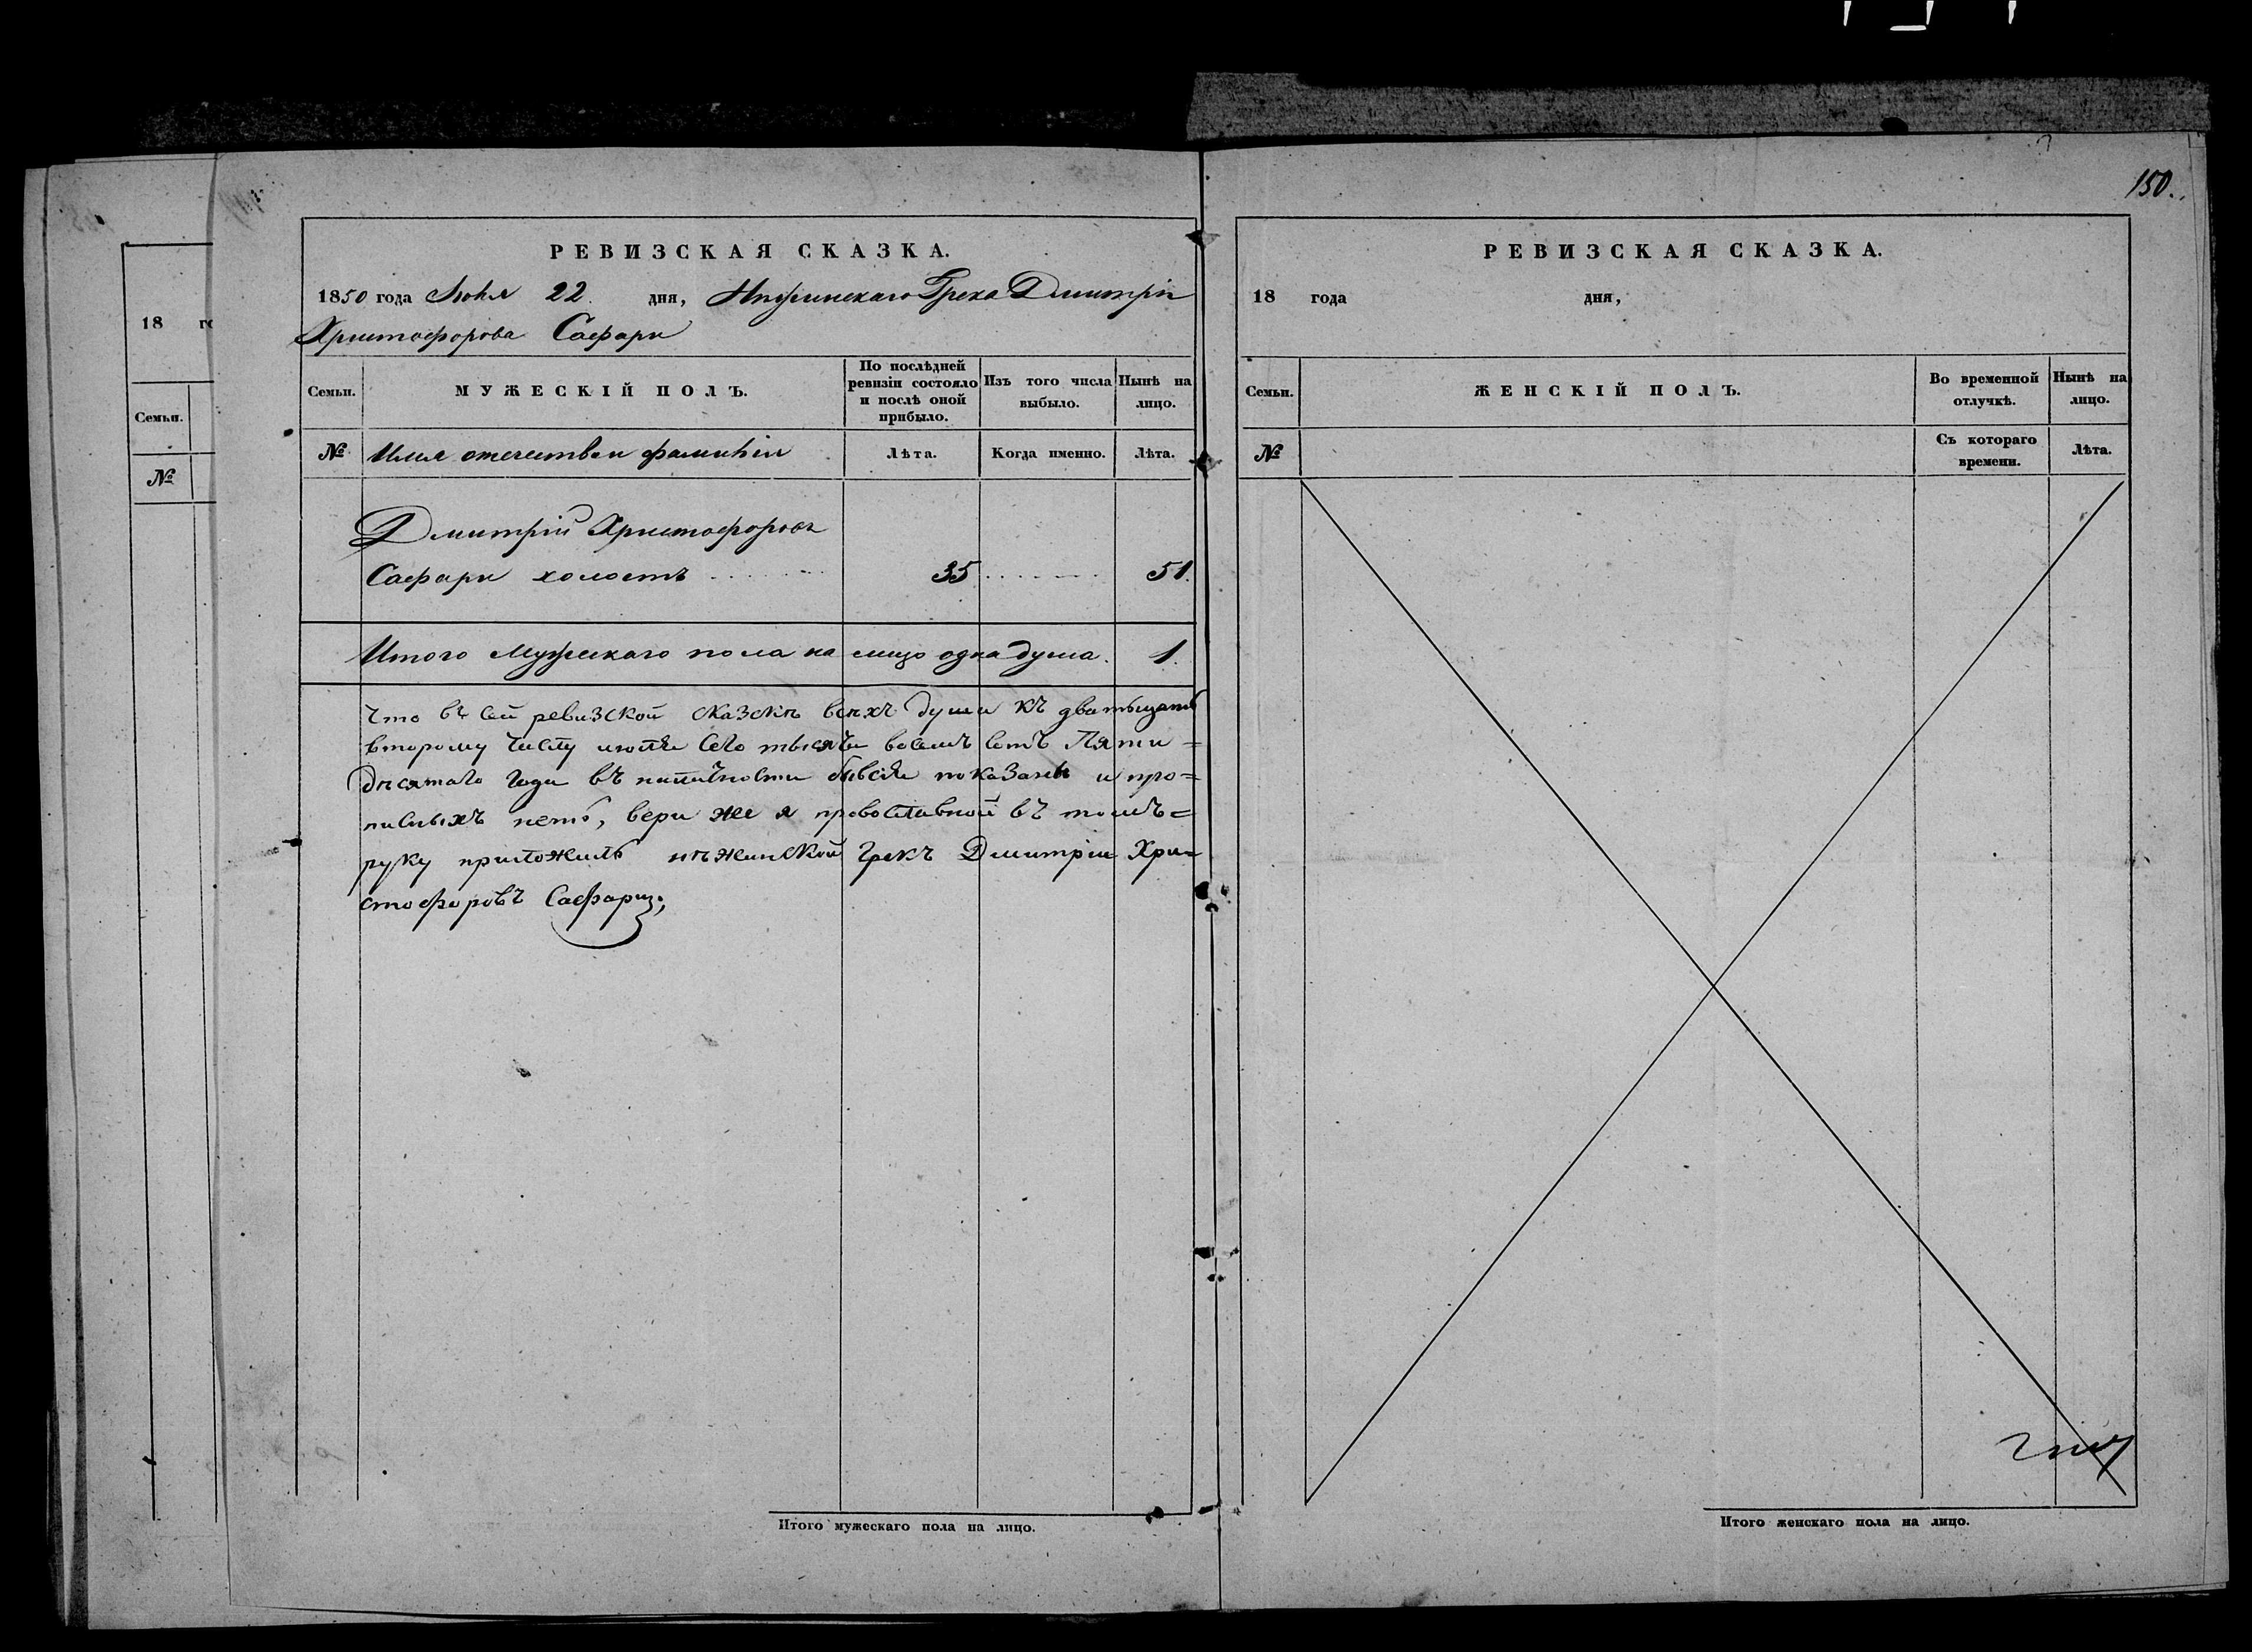 150.
РЕВИЗСКАЯ СКАЗКА.
1850 года Июня 22 дня, Нѣжинскаго Грека Дмитрія
Христофорова Сафари
Семьи.
МУЖЕСКІЙ ПОЛЪ.
По послѣдней ревизіи состояло и послѣ оной прибыло.
Изъ того числа выбыло.
Нынѣ на лицо.
№
Имя отечество и фамилія
Лѣта.
Когда именно.
Лѣта.
Дмитрій Христофоровъ
Сафари холостъ 35 51.
Итого Мужескаго пола на лицо одна душа. 1.
Что въ сей ревизской сказкѣ всѣхъ души къ дватцать
второму числу июня сего тысяча восемъ сотъ Пяти=
десятаго года въ наличности показаны и про=
писныхъ нетъ, вери же я православной въ томъ=
руку приложилъ нѣжинской грекъ Дмитрій Хри=
стофоровъ Сафари;
Итого мужескаго пола на лицо.
РЕВИЗСКАЯ СКАЗКА.
18 года дня,
Семьи.
ЖЕНСКІЙ ПОЛЪ.
Во временной отлучкѣ.
Нынѣ на лицо.
№
Съ котораго времени.
Лѣта.
Итого женскаго пола на лицо.
18 го
Семьи.
№